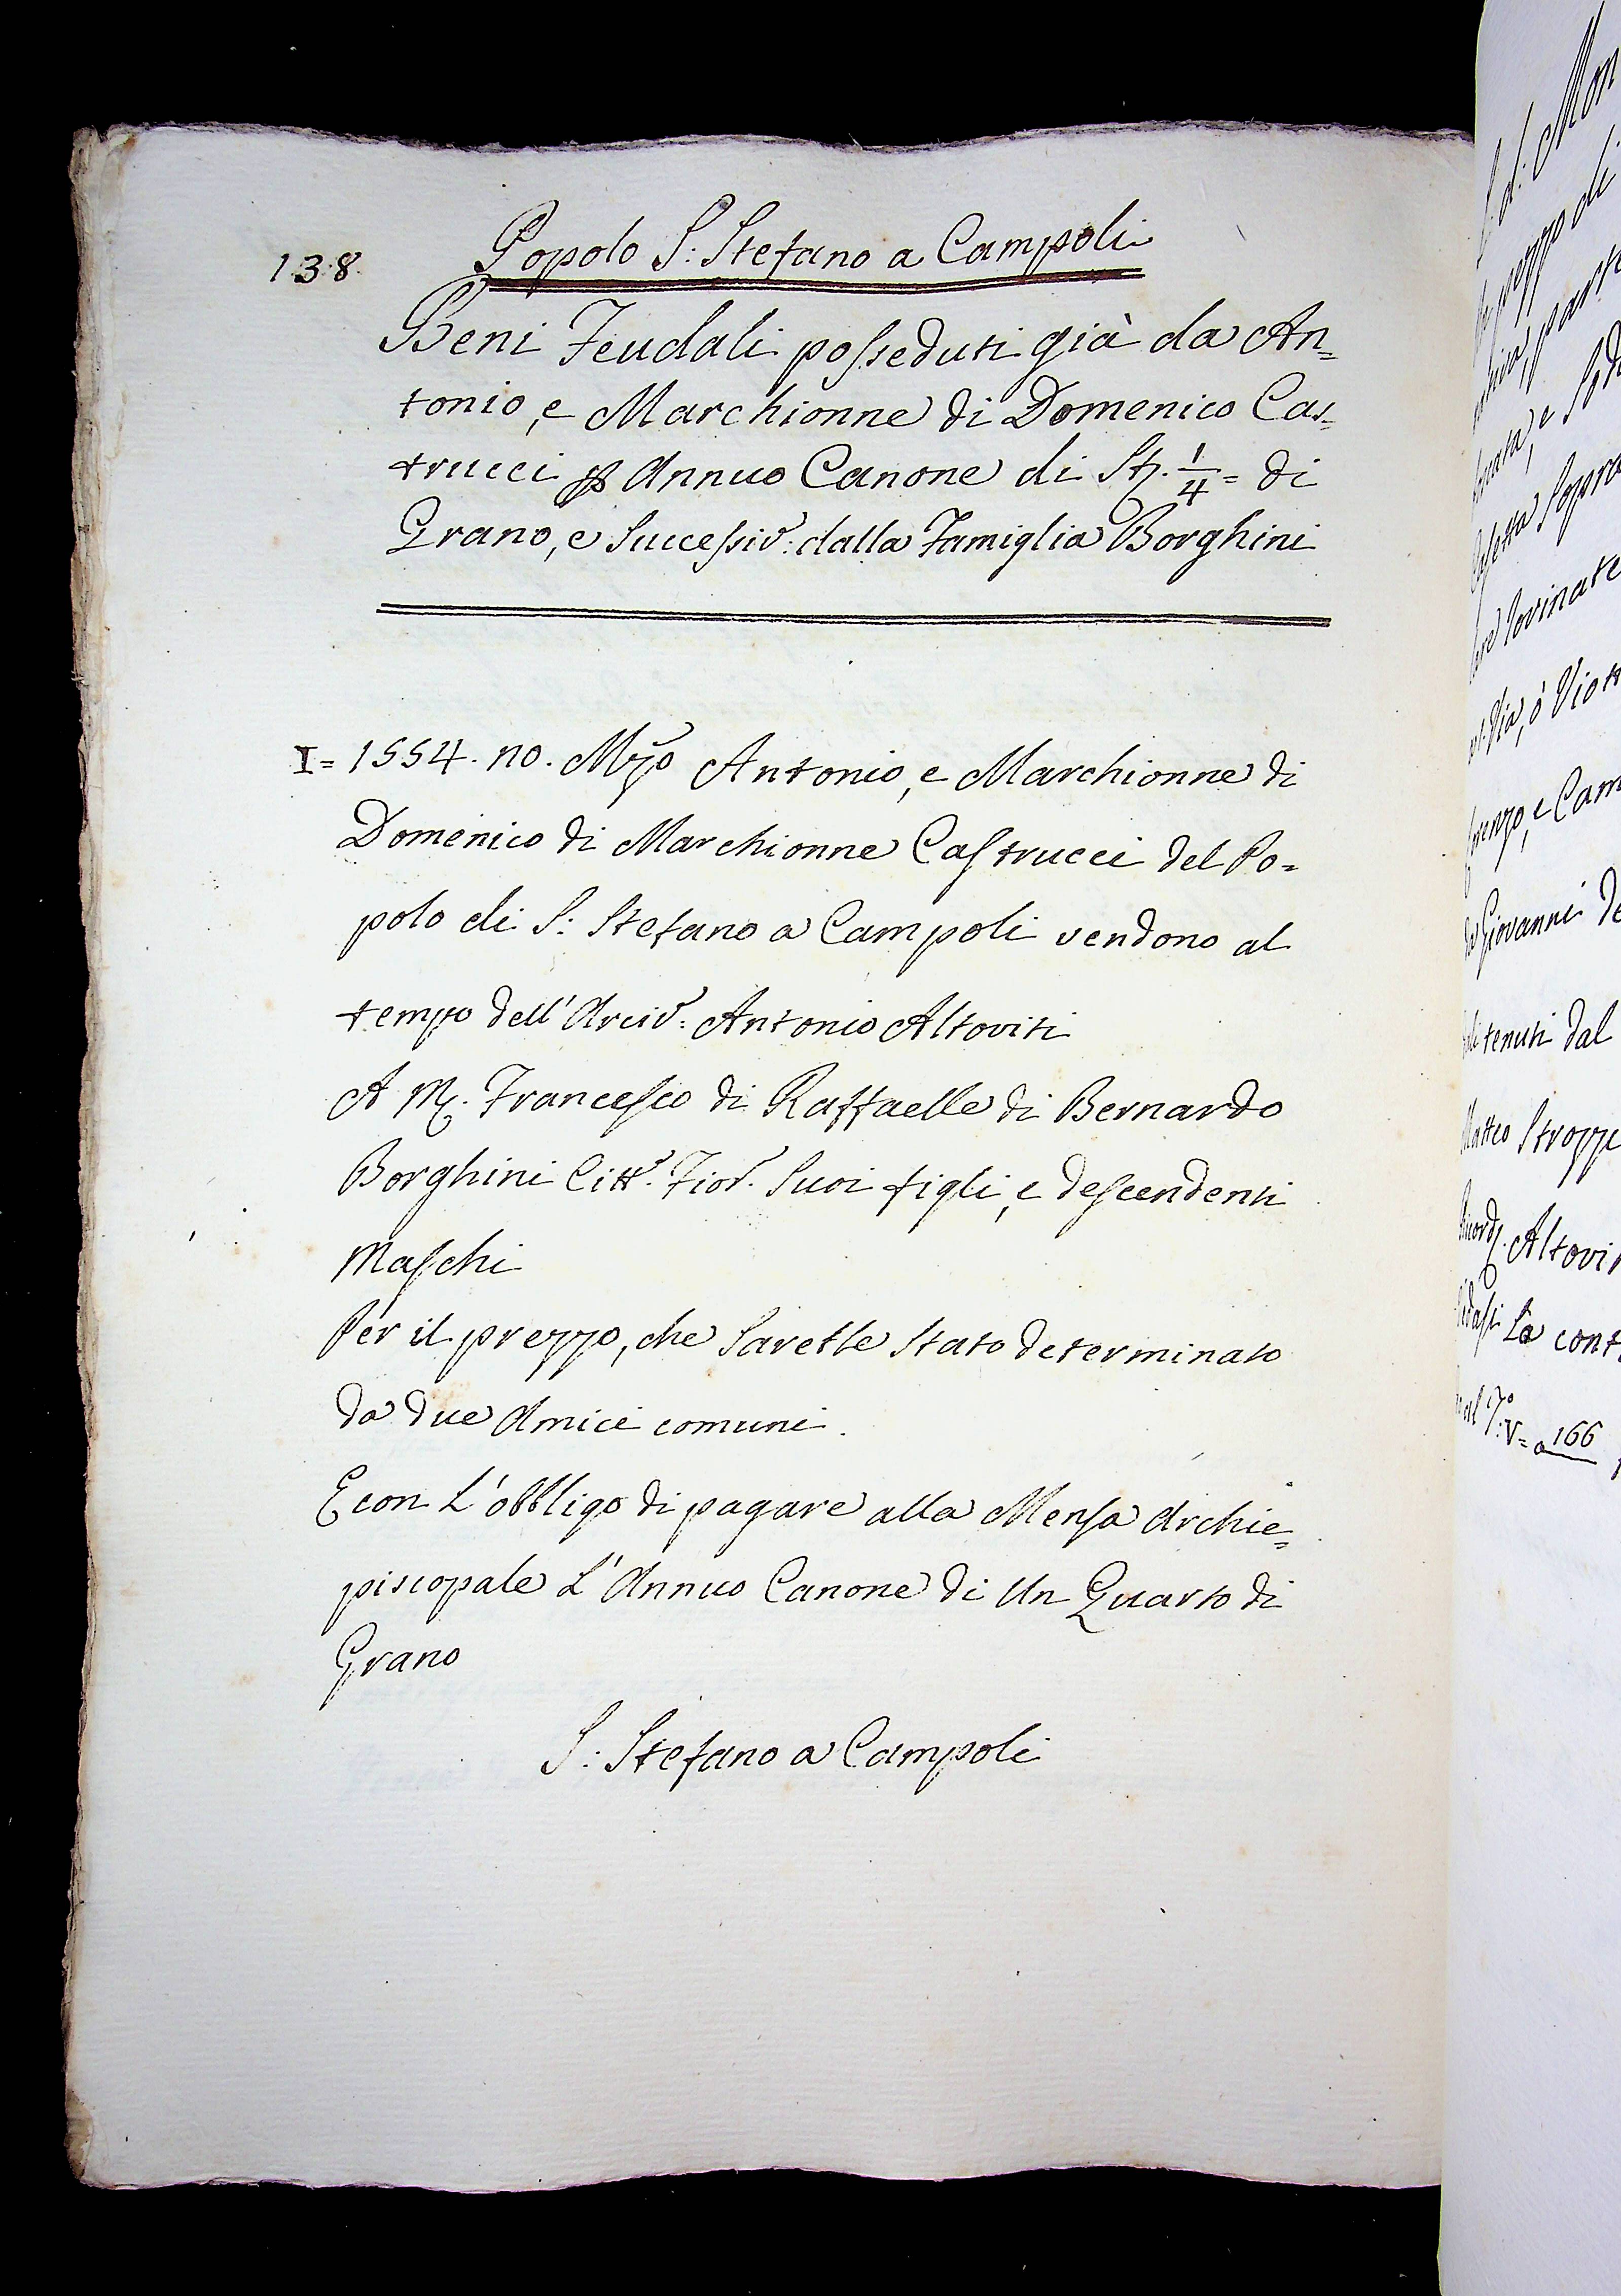 138.
Popolo S: Stefano a Campoli
Beni Feudali posseduti già da An=
tonio, e Marchionne di Domenico Cas=
trucci p Annuo Canone di Sta. 1/4 = di
Grano, e Successiv: dalla Famiglia Borghini
I= 1554. 10. Mzo Antonio, e Marchionne di
Domenico di Marchionne Castrucci del Po=
polo di S: Stefano a Campoli vendono al
tempo dell'Arciv: Antonio Altoviti
A M. Francesco di Raffaelle di Bernardo
Borghini Citt. Fior. Suoi figli, e descendenti
Maschi
Per il prezzo, che Sarebbe Stato determinato
da due Amici comuni.
E con L'obbligo di pagare alla Mensa Archie=
piscopale L'Annuo Canone di Un Quarto di
Grano
S: Stefano a Campoli
S. d. Mon
prezzo di
parte
e Sod
Casetta Sopra
rovinate
Via, ò Viot
e Cam
Giovanni de
tenuti dal
Matteo Strozzi
Altovi
La cont
V= a 166